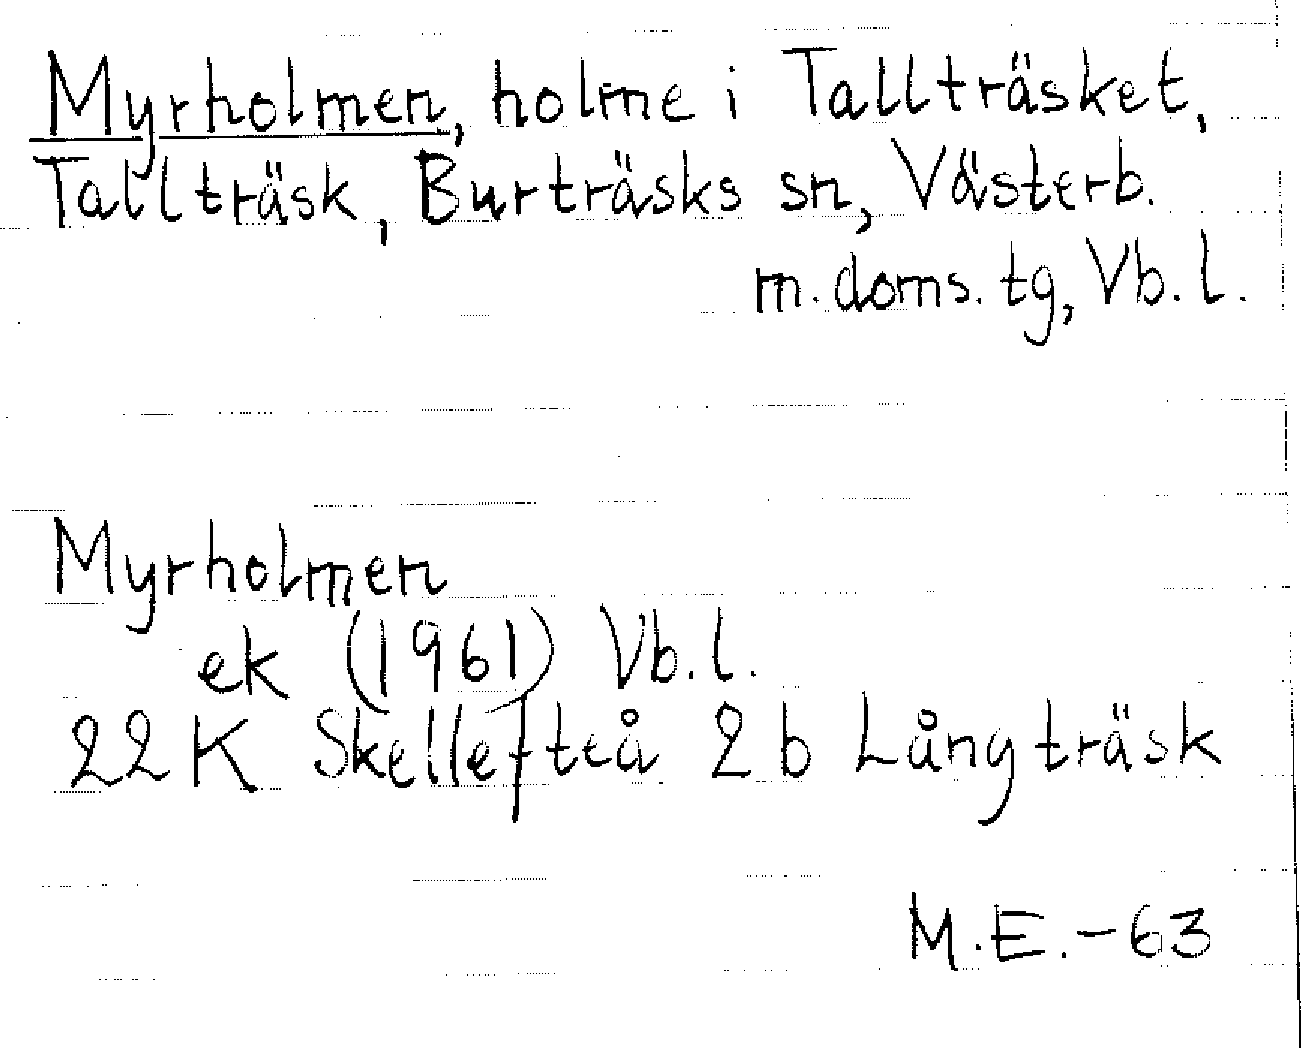 Myrholmen, holme i Tallträsket,
Tallträsk, Burträsks sn, Västerb.
m. doms. tg, Vb. l.
Myrholmen
ek (1961) Vb. l.
22 K Skellefteå 2 b Långträsk
M.E.-63